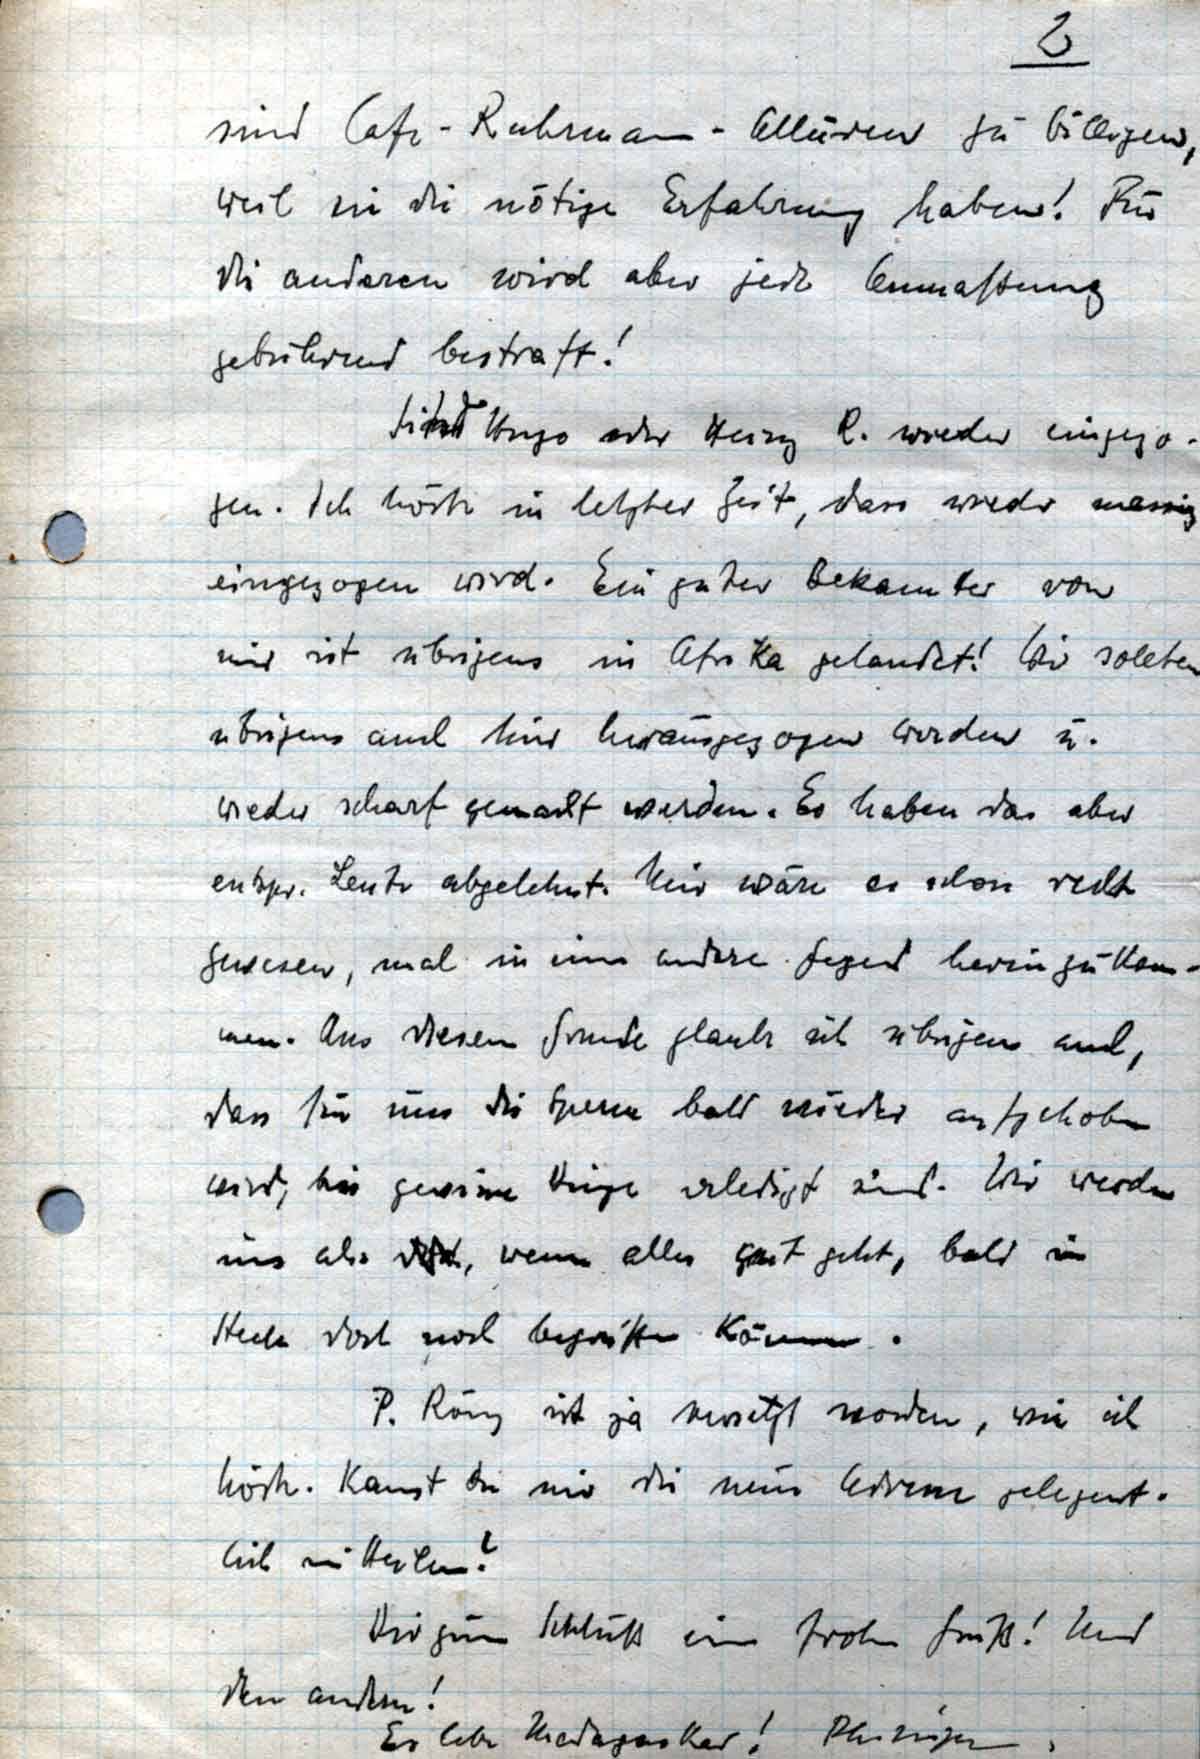 2
sind Cafe-Ruhrmann-Allüren zu billigen,
weil sie die nötige Erfahrung haben! Für
die anderen wird aber jede Anmaßung
gebührend bestraft!
Sind Hugo oder Heinz R. wieder eingezo-
gen. Ich hörte in letzter Zeit, dass wieder massig
eingezogen wird. Ein guter Bekannter von
mir ist übrigens in Afrika gelandet! Wir sollten
übrigens auch hier herausgezogen werden u.
wieder scharf gemacht werden. Es haben das aber
entspr. Leute abgelehnt. Mir wäre es schon recht
gewesen, mal in eine andere Gegend hereinzukom-
men. Aus diesem Grunde glaube ich übrigens auch,
dass für uns die Sperre bald wieder aufgehoben
wird, bis gewisse Dinge erledigt sind. Wir werden
uns also, wenn alles gut geht, bald in
doch noch begrüßen können.
P. Röng ist ja versetzt worden, wie ich
hörte. Kannst Du mir die neue Adresse gelegent-
lich mitteilen?
Dir zum Schluß einen frohen Gruß! Und
den andern!
Es lebe Madagaskar!